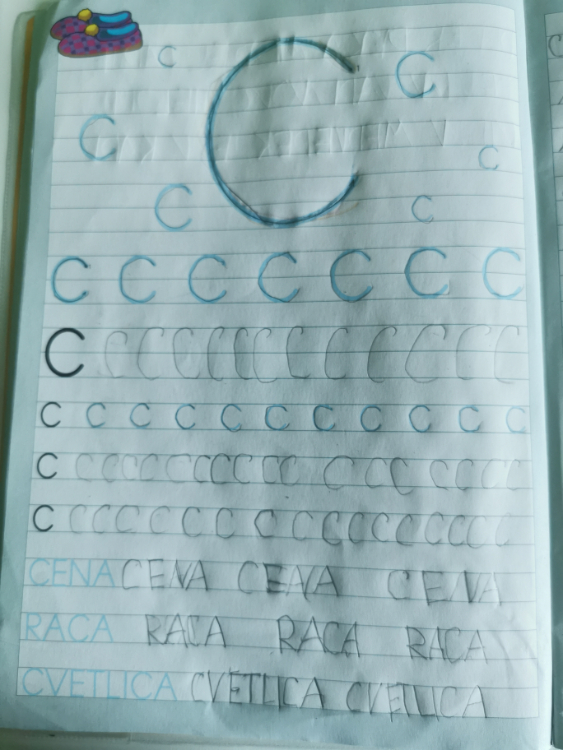 C
C C
C C
C C
C C C C C C C
C C C C C C C C C C C C C
C C C C C C C C C C C
C C C C C C C C C C C C C C C C C C
C C C C C C C C C C C C C C C C C
CENA CENA CENA CENA
RACA RACA RACA RACA
CVETLICA CVETLICA CVETLICA